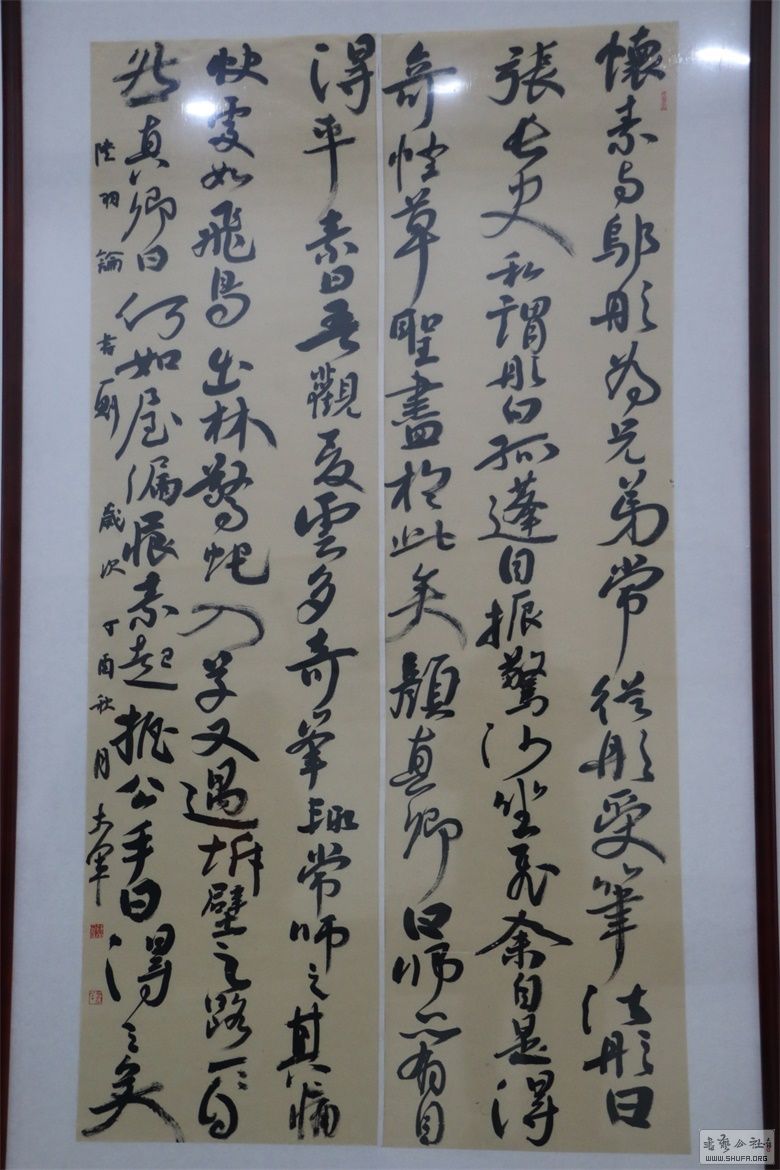 懷素与鄔彤为兄弟常從彤受筆法彤曰
張長史私謂彤曰孤蓬自振驚沙坐飛余自是得
奇怪草聖盡於此矣顏真卿曰师亦有自
得乎素曰吾觀夏雲多奇峯輒常师之其痛
快處如飛鳥出林驚蛇入草又遇坼壁之路一一自
然真卿曰何如屋漏痕素起握公手曰得之矣
陸羽論書一則 歲次丁酉秋月 軍
書藝公社
WWW.SHUFA.ORG